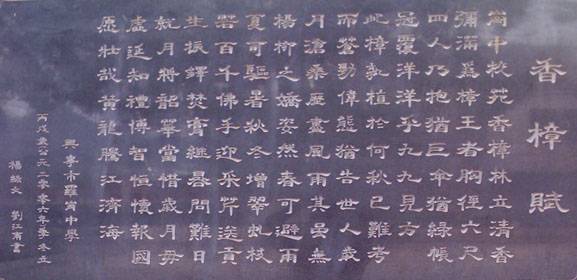 香樟賦
崗中校苑香樟林立清香
彌滿爲樟王者胸徑六尺
四人乃抱猶巨傘猶綠帳
冠覆洋洋乎九九見方
此樟孰植於何秋已難考
而蒼勁偉態猶告世人歲
月滄桑歷盡風雨其虽無
楊柳之嬌姿然春可避雨
夏可驅暑秋冬增翠虬枝
若百千佛手迎采芹送貢
生振鐸焚膏繼晷問難日
就月將韶華當惜歲月毋
虛延知禮博智恒懷報國
愿壯哉黃龍騰江濟海
興寧市羅崗中學
丙戌歲公元二零零六年冬立
楊文 劉江甫書